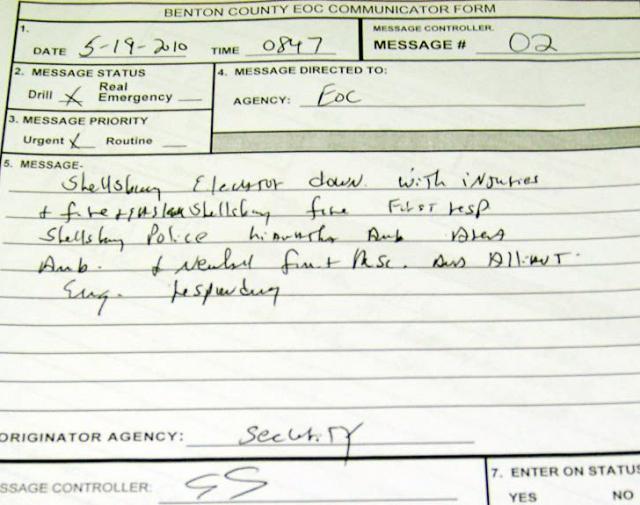 BENTON COUNTY EOC COMMUNICATOR FORM
1.
DATE 5-19-2010 TIME 0847
MESSAGE CONTROLLER.
MESSAGE # 02
2. MESSAGE STATUS
Drill X Real Emergency
4. MESSAGE DIRECTED TO:
AGENCY: EOC
3. MESSAGE PRIORITY
Urgent X Routine
5. MESSAGE-
Shellsburg Elevator down with injuries
& fire Shellsburg fire First resp
Shellsburg Police Amb
Amb. &
Eng. responding
ORIGINATOR AGENCY: Security
SSAGE CONTROLLER: GS
7. ENTER ON STATUS
YES NO